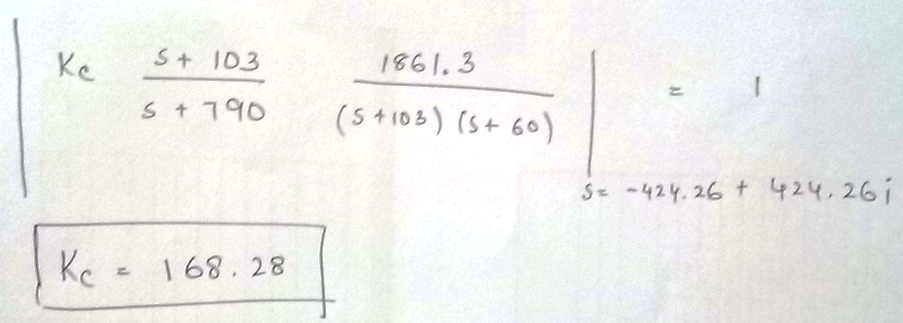 | Kc (s + 103)/(s + 790) 1861.3/((s + 103)(s + 60)) | = 1
s = -424.26 + 424.26i
Kc = 168.28